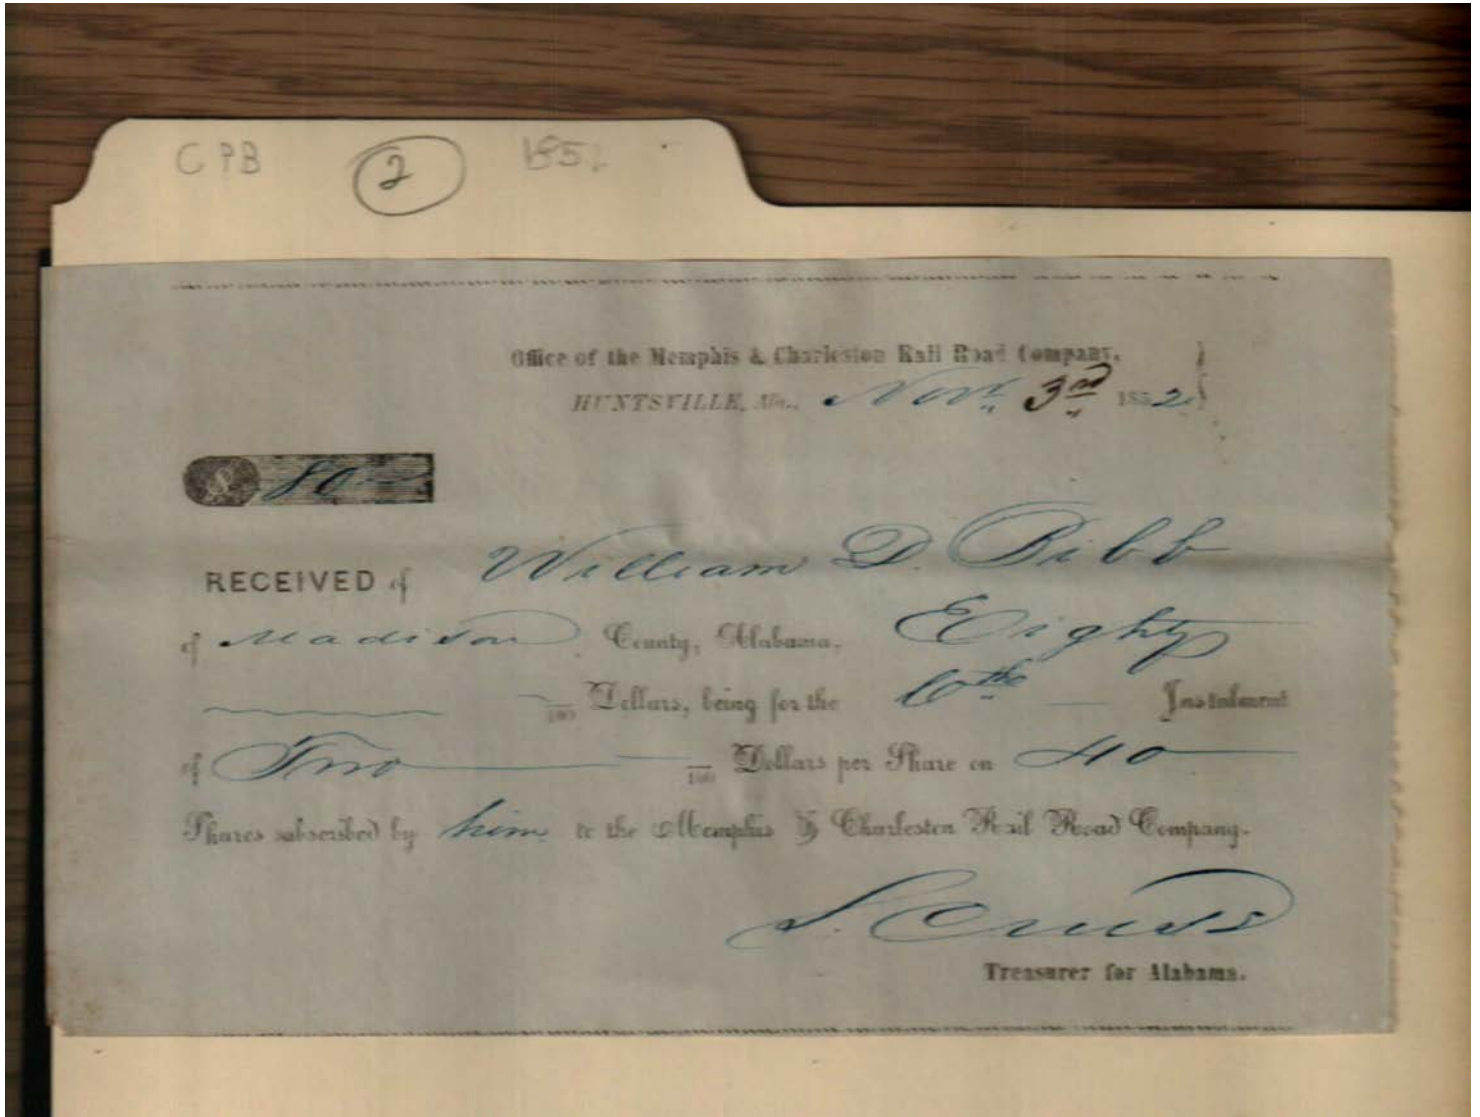 CPB 2 185
Office of the Memphis & Charleston Rail Road Company,
HUNTSVILLE, Ala., Novr. 3rd 1852
$ 80
RECEIVED of William D. Bibb
of Madison County, Alabama, Eighty
/100 Dollars, being for the Instalment
of Two /100 Dollars per Share on 40
Shares subscribed by him to the Memphis & Charleston Rail Road Company.
S. Cruse
Treasurer for Alabama.